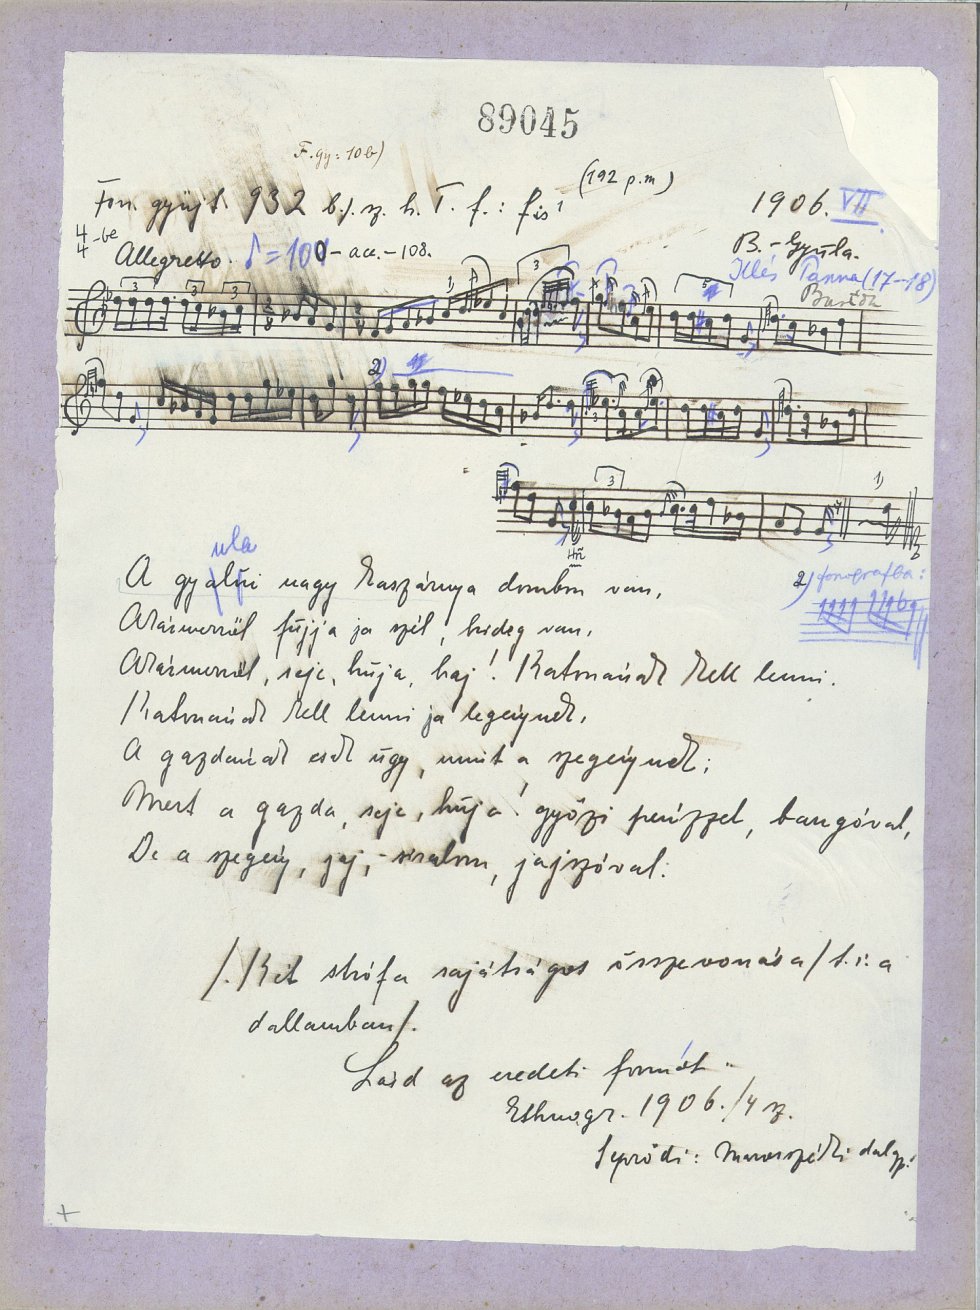 89045
F. gy: 10b)
(192 p.m)
Fon. gyüjt. 932 b./ sz. h. T. f.: fis¹
1906. VII.
4/4-be
Allegretto. ♪=100 - acc. - 108.
B.-Gyula.
Illés Panna (17-18)
Bartók
3 3 3 1) 3 5
2)
3
3 1)
ula
A gyalui nagy kaszárnya dombon van,
Akármerről fújja ja szél, hideg van.
Akármerről, seje, húja, haj! Katonának kell lenni.
Katonának kell lenni ja legénynek,
A gazdának csak úgy, mint a szegénynek;
Mert a gazda, seje, húja! győzi pénzzel, bangóval,
De a szegény, jaj, siralom, jajszóval.
2) fonografba:
/./ Két strófa sajátságos összevonása / t. i. a
dallamban/.
Lásd az eredeti formát
Ethnogr. 1906./4 sz.
Seprődi: Marosszéki dalgy.